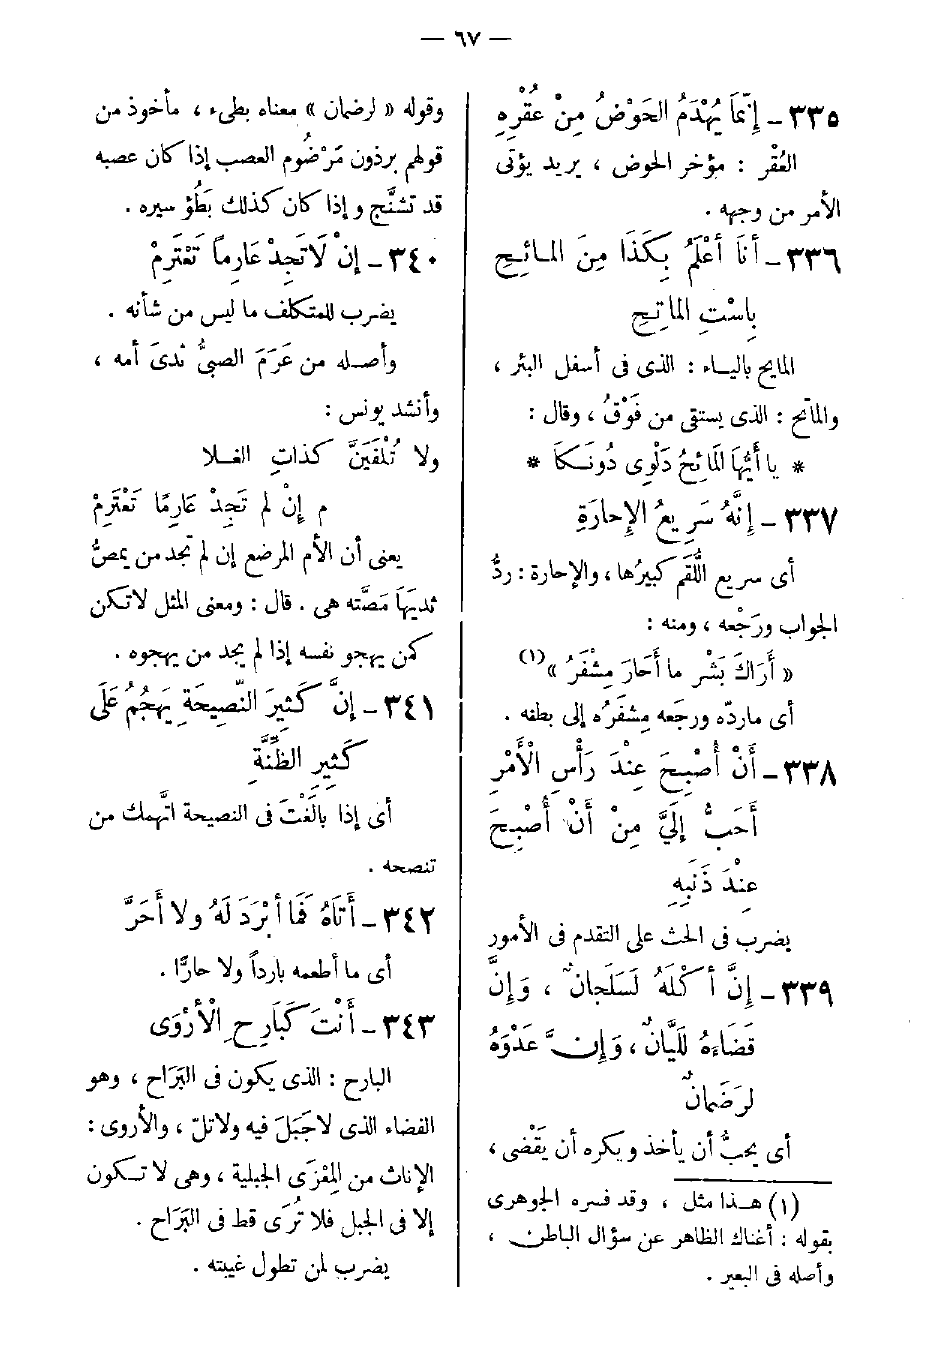 — ٦٧ —
٣٣٥ـ إِنَّمَا يُهْدَمُ الحَوْضُ مِنْ عُقْرِهِ
العُقْر : مؤخر الحوض ، يريد يؤتى
الأمر من وجهه .
٣٣٦ـ أَنَا أَعْلَمُ بِكَذَا مِنَ المـائِـحِ
بِاسْتِ المَاتِـحِ
المايح باليـاء : الذى فى أسفل البئر ،
والماتح : الذى يستقى من فَوْقُ ، وقال :
* يا أَيُّهَا المَائِحُ دَلْوِى دُونَـكَا *
٣٣٧ـ إِنَّهُ سَرِيعُ الإِحارَةِ
أى سريع اللَّقَم كبيرُها ، والإحارة : ردُّ
الجواب ورَجْعه ، ومنه :
« أَرَاكَ بَشَرٌ ما أَحَارَ مِشْفَرُ » (١)
أى ماردّه ورجَعه مِشفَرُه إلى بطنه .
٣٣٨ـ أَنْ أُصْبِحَ عِنْدَ رَأْسِ الْأَمْرِ
أَحَبُّ إِلَيَّ مِنْ أَنْ أُصْبِحَ
عِنْدَ ذَنَبِهِ
يضرب فى الحث على التقدم فى الأمور
٣٣٩ـ إِنَّ أَكْلَهُ لَسَلَجَانٌ ، وَإِنَّ
قَضَاءَهُ لَلَيَّانٌ ، وَإِنَّ عَدْوَهُ
لَرَضَمَانٌ
أى يحبُّ أن يأخذ ويكره أن يَقْضى ،
(١) هـذا مثل ، وقد فسره الجوهرى
بقوله : أغناك الظاهر عن سؤال الباطن ،
وأصله فى البعير .
وقوله « لرضمان » معناه بطىء ، مأخوذ من
قولهم برذون مَرْضُوم العصب إذا كان عصبه
قد تشنَّج وإذا كان كذلك بَطُؤ سيره .
٣٤٠ـ إِنْ لَا تَجِدْ عَارِمًا تَعْتَرِمْ
يضرب للمتكلف ما ليس من شأنه .
وأصـله من عَرَمَ الصبىُّ ثدىَ أمه ،
وأنشد يونس :
ولا تُلْفَيَنَّ كذاتِ الغـلا
م إِنْ لم تَجِدْ عَارِمًا تَعْتَرِمْ
يعنى أن الأم المرضع إن لم تجد من يمصُّ
ثديَهَا مَصَّته هى . قال : ومعنى المثل لا تكن
كمن يهجو نفسه إذا لم يجد من يهجوه .
٣٤١ـ إِنَّ كَثِيرَ النَّصِيحَةِ يَهْجُمُ عَلَى
كَثِيرِ الظِّنَّةِ
أى إذا بالَغْتَ فى النصيحة اتَّهمك من
تنصحه .
٣٤٢ـ أَتَاهُ فَمَا أَبْرَدَ لَهُ ولا أَحَرَّ
أى ما أطعمه بارداً ولا حارًّا .
٣٤٣ـ أَنْتَ كَبَارِحِ الْأَرْوَى
البارح : الذى يكون فى البَرَاح ، وهو
الفضاء الذى لا جَبَلَ فيه ولا تلّ ، والأروى :
الإناث من المِعْزَى الجبلية ، وهى لا تـكون
إلا فى الجبل فلا تُرَى قط فى البَرَاح .
يضرب لمن تطول غيبته .